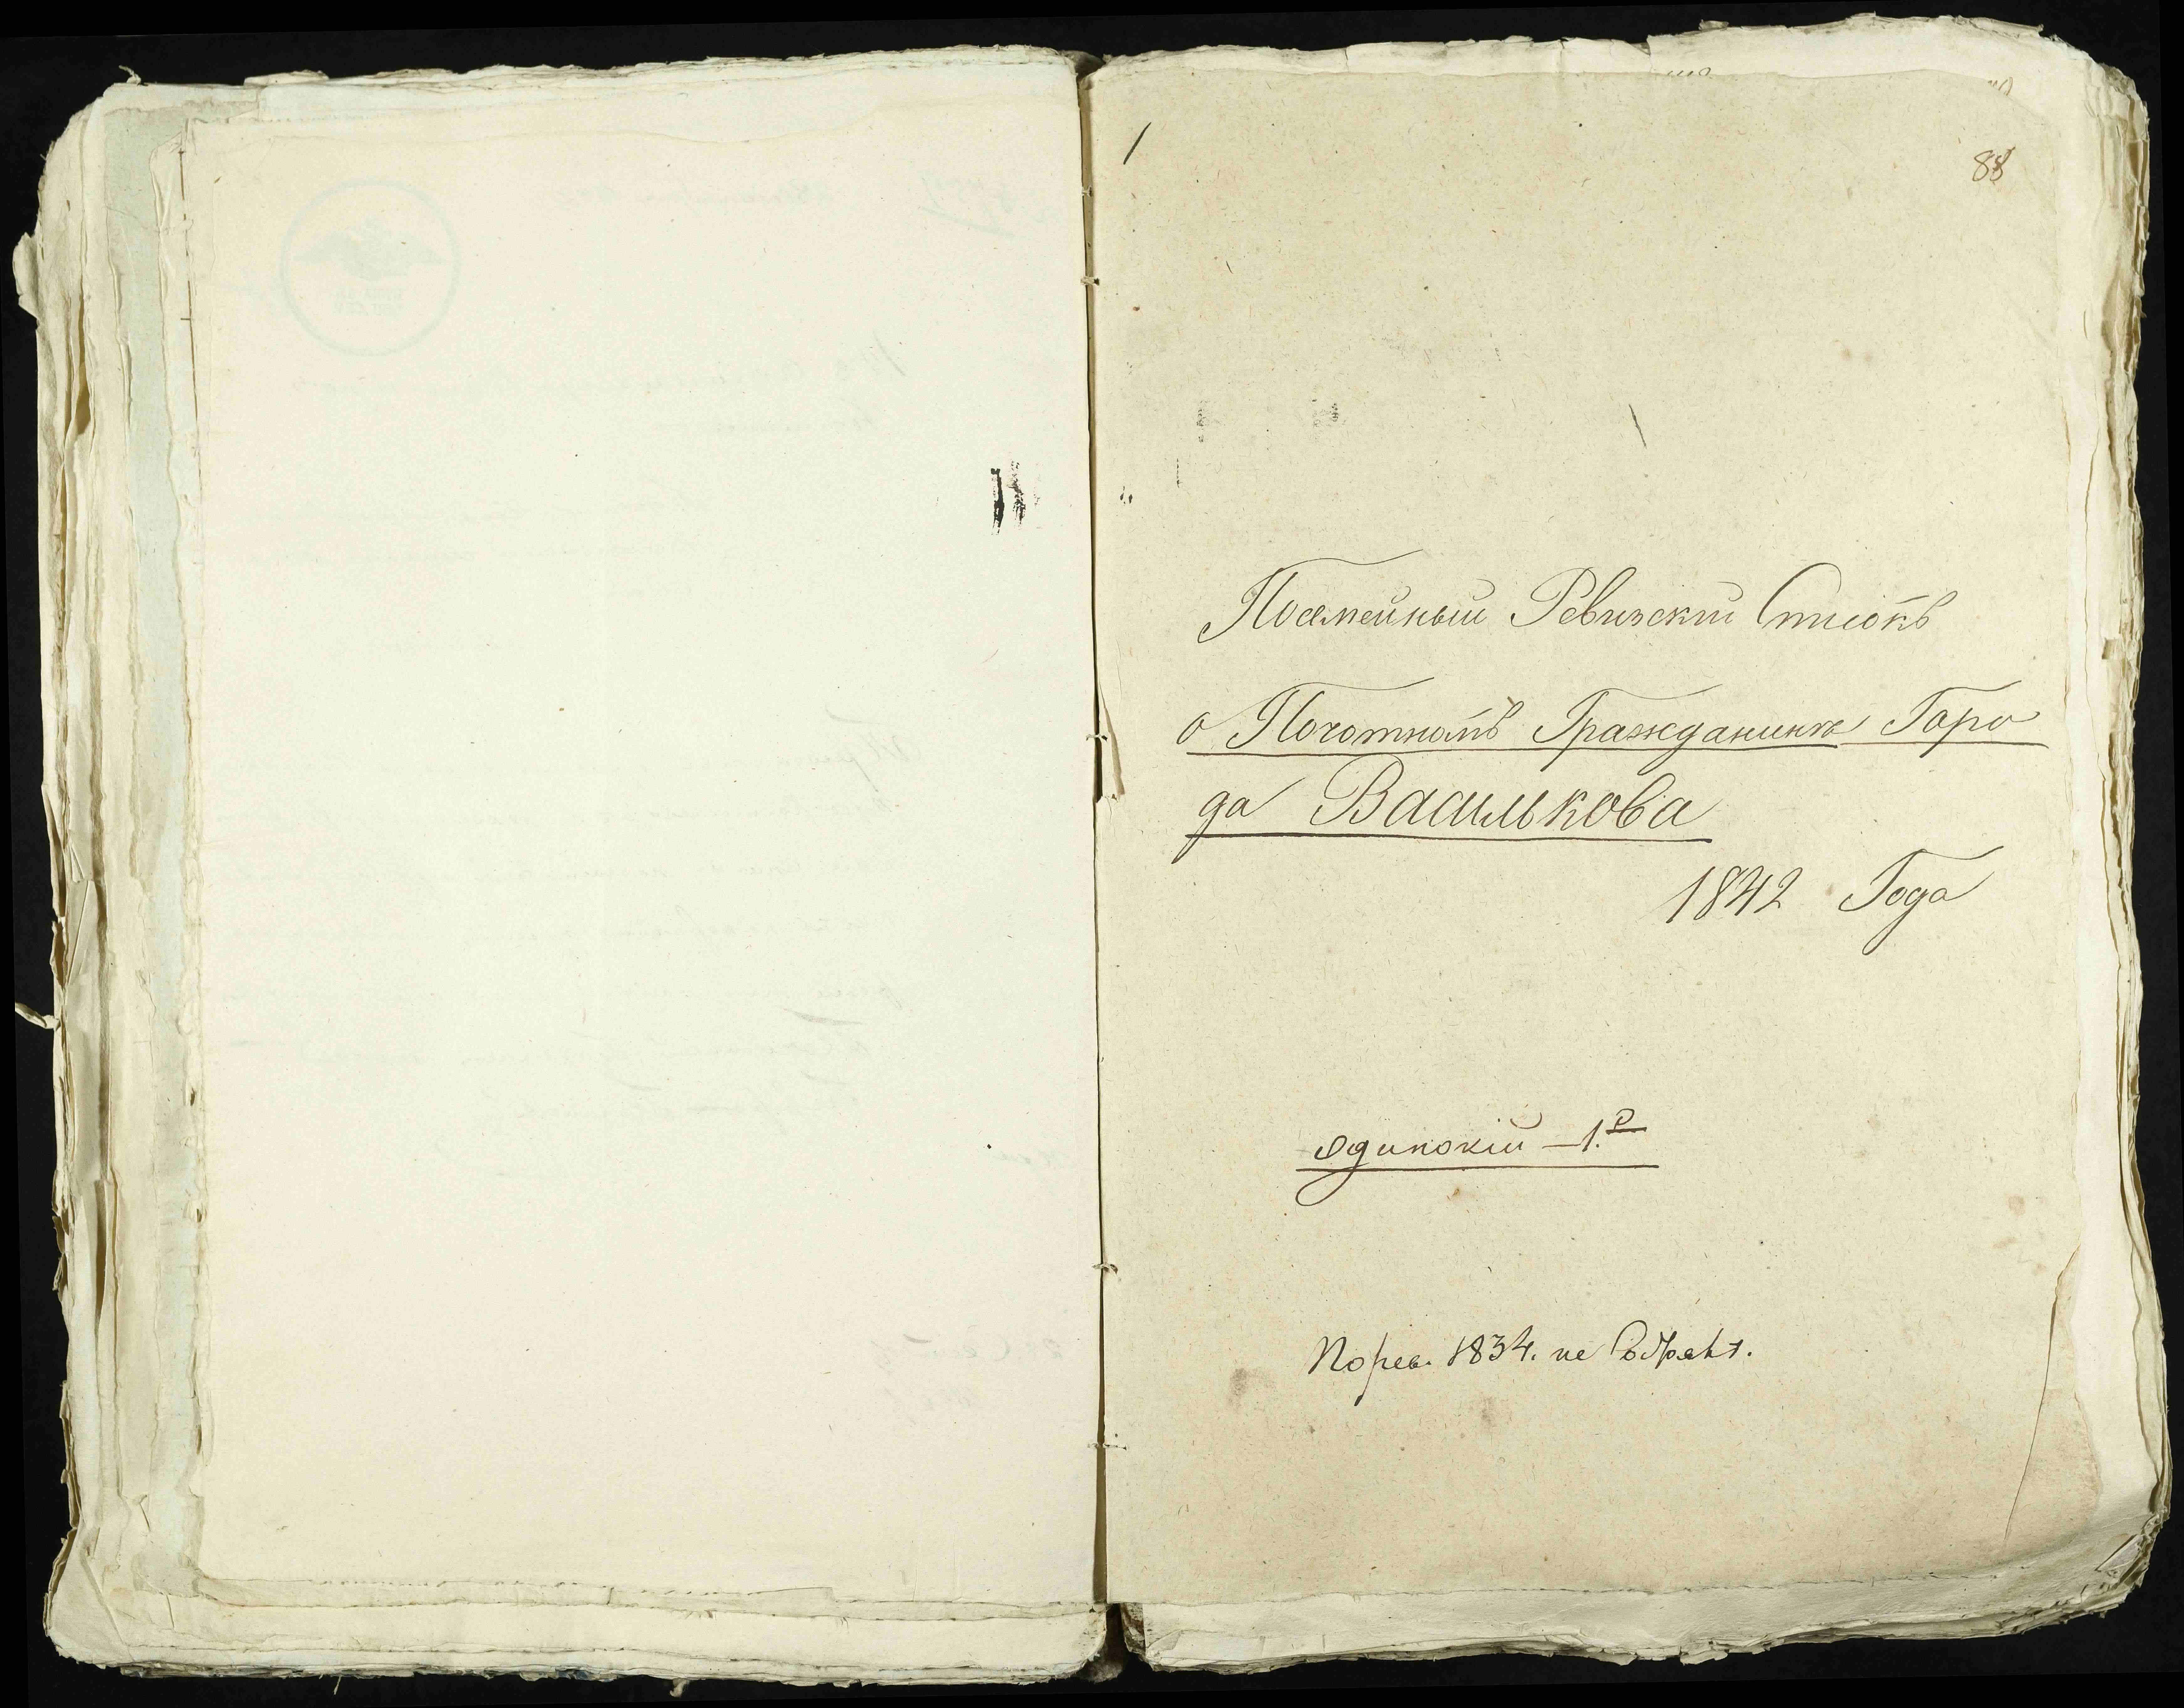 88
Посемейный Ревизскій Списокъ
о Почотномъ Гражданинѣ Горо
да Василькова
1842 Года
Одинокій — 1.й
По рев. 1834. не